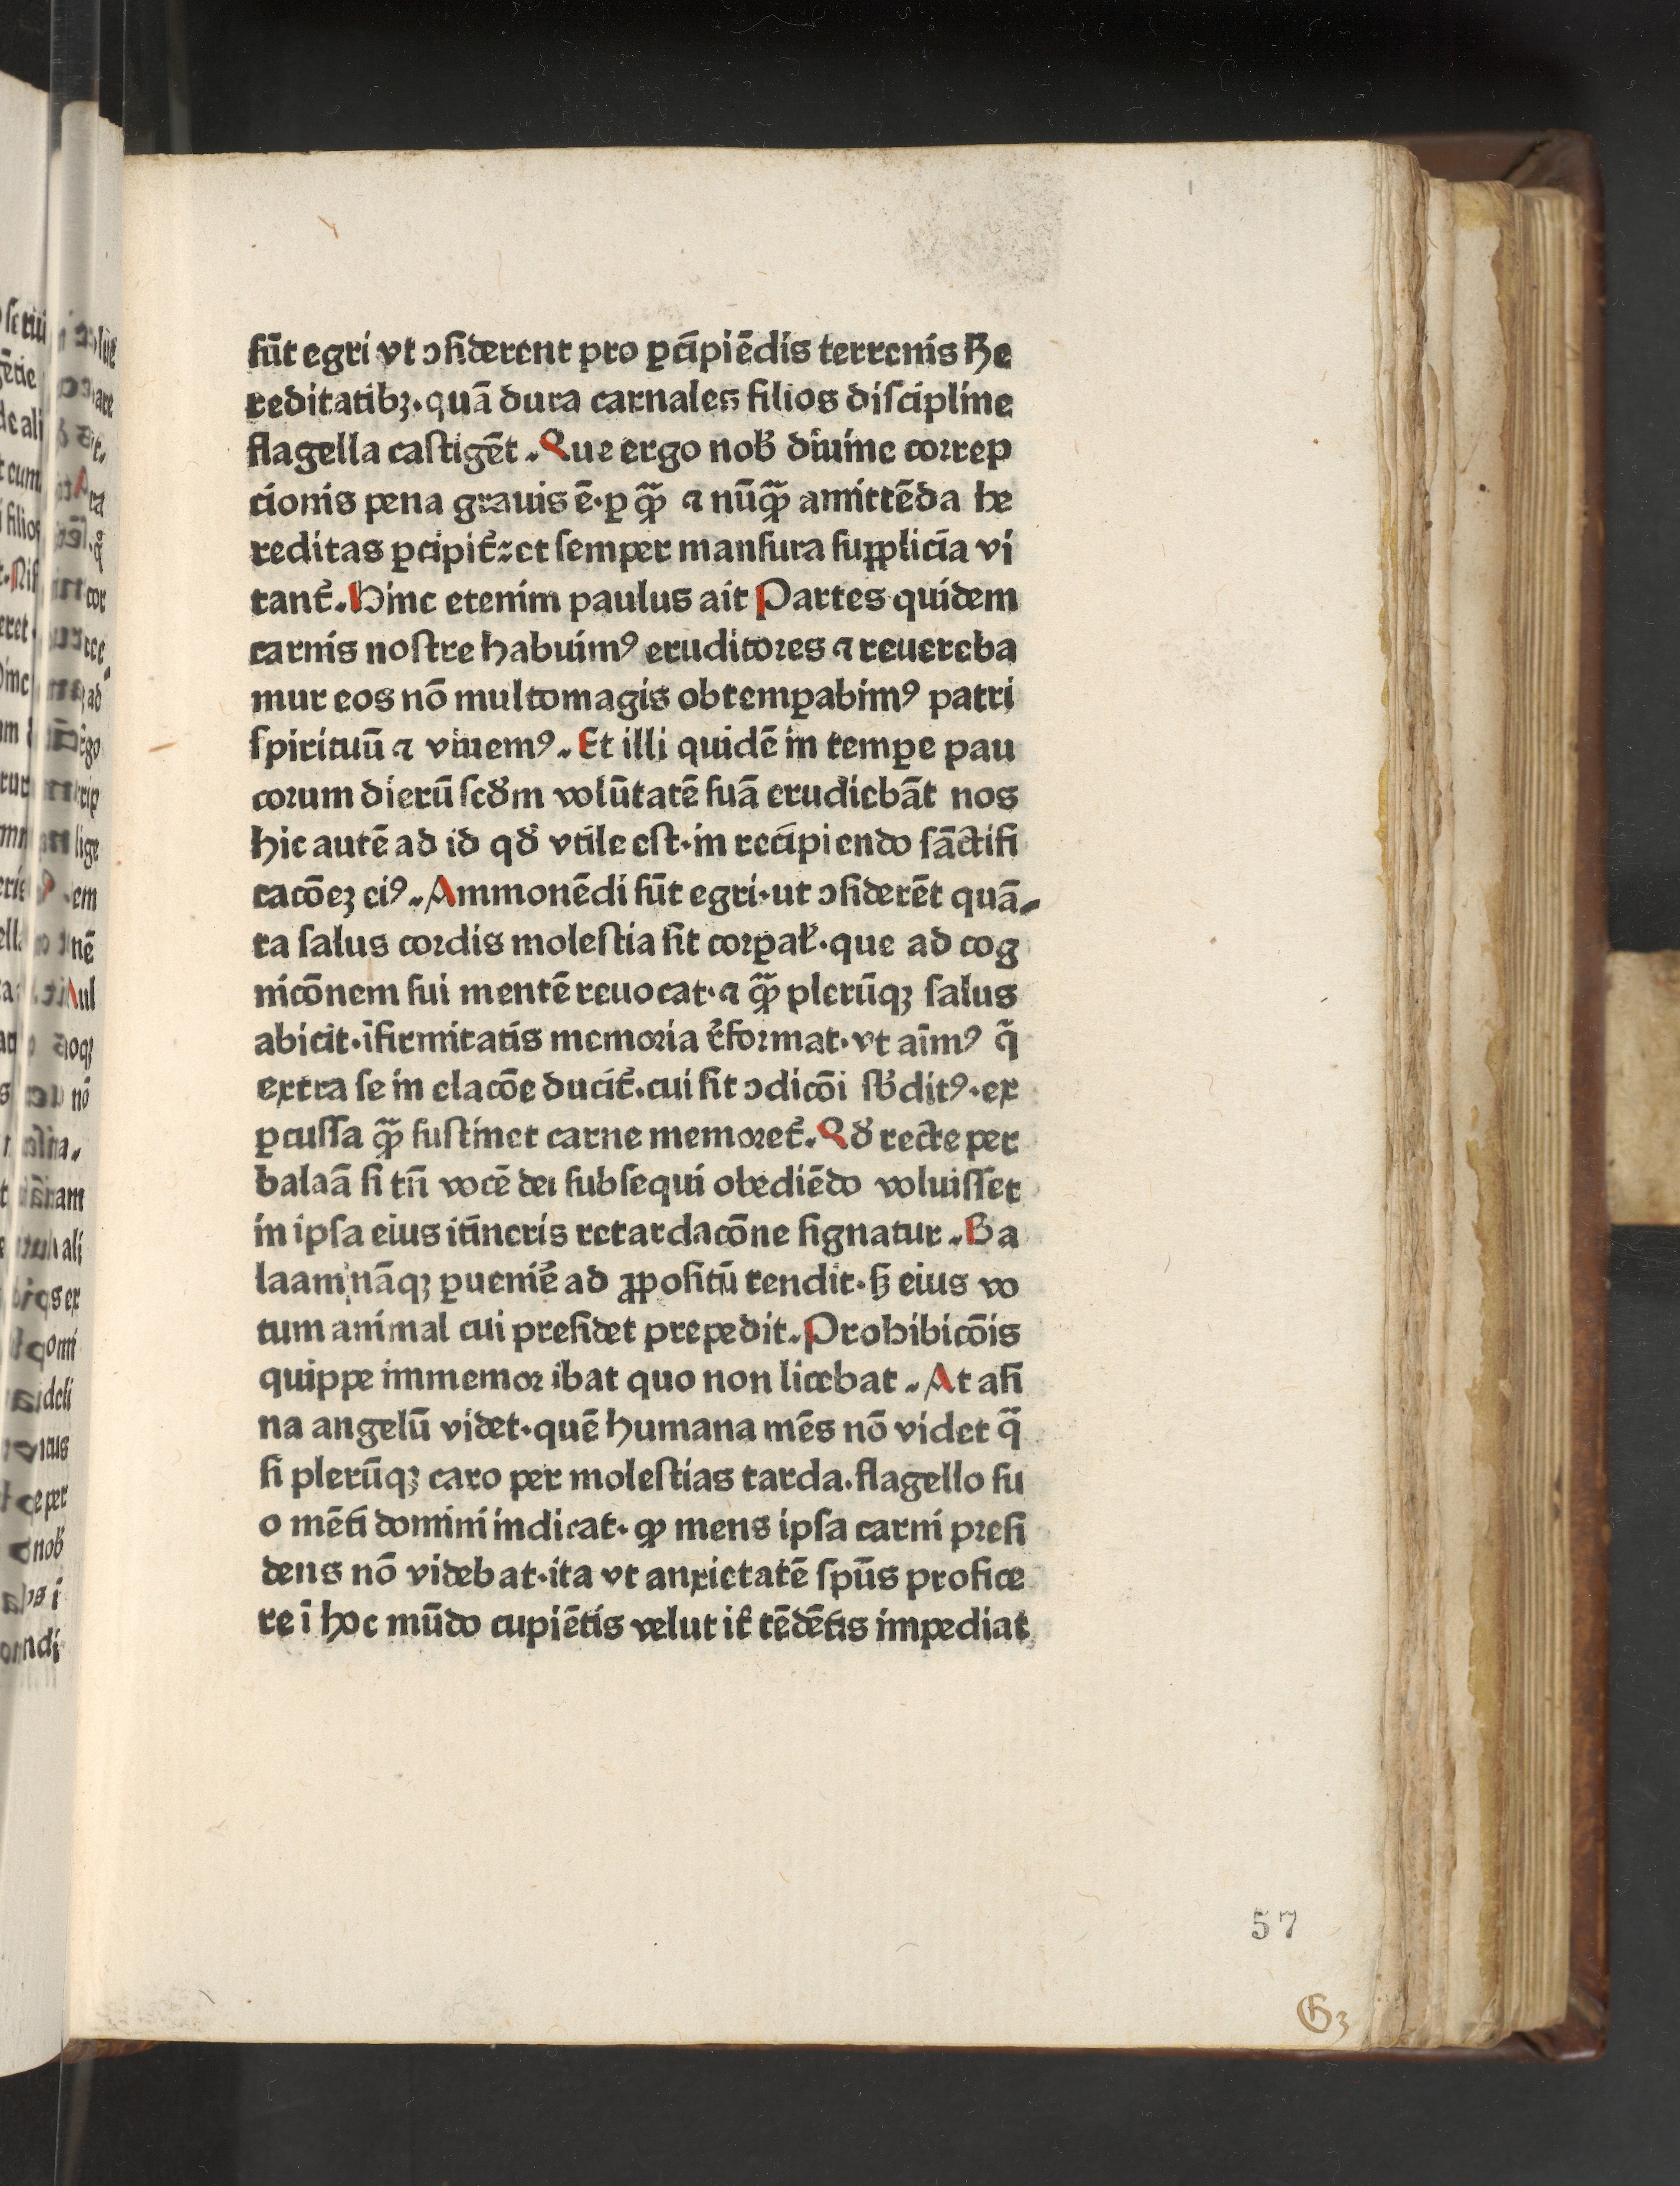 sūt egri vt ↄsiderent pro ꝑcipiēdis terrenis He
reditatibꝫ·quā dura carnales filios discipline
flagella castigēt. Que ergo nob̾ diuine correp
cionis pena grauis ē·ꝑ qͣꝫ ⁊ nūqͣꝫ amittēda he
reditas ꝑcipit᷑:et semper mansura supplicia vi
tant᷑. Hinc etenim paulus ait Partes quidem
carnis nostre habuimꝰ eruditores ⁊ reuereba
mur eos nō multomagis obtemꝑabimꝰ patri
spirituū ⁊ viuemꝰ. Et illi quidē in temꝑe pau
corum dierū scd̾m volūtatē suā erudiebāt nos
hic autē ad id qd̾ vtile est·in recipiendo sāctifi
cacōeꝫ eiꝰ. Ammonēdi sūt egri·ut ↄsiderēt quā
ta salus cordis molestia sit corꝑal̾·que ad cog
nicōnem sui mentē reuocat·⁊ qͣꝫ plerūqꝫ salus
abicit·īfirmitatis memoria r̾format·vt aīmꝰ q̄
extra se in elacōe ducit᷑·cui sit ↄdicōi sb̾ditꝰ·ex
ꝑcussa qͣꝫ sustinet carne memoret᷑. Qd̾ recte per
balaā si tn̄ vocē dei subsequi obediēdo voluisset
in ipsa eius itineris retardacōne signatur. Ba
laam nāqꝫ ꝑuenir̾e ad ꝓpositū tendit·sꝫ eius vo
tum animal cui presidet prepedit. Prohibicōis
quippe immemor ibat quo non licebat. At asi
na angelū videt·quē humana mēs nō videt qͣ
si plerūqꝫ caro per molestias tarda·flagello su
o mēti domini indicat·ꝙ mens ipsa carni presi
dens nō videbat·ita vt anxietatē spūs profice
re ī hoc mūdo cupiētis velut it̾ tēdētis impediat
57
G3